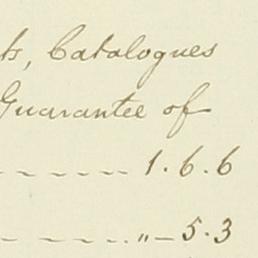 ts, Catalogues
Guarantee of
1.6.6
"-5.3